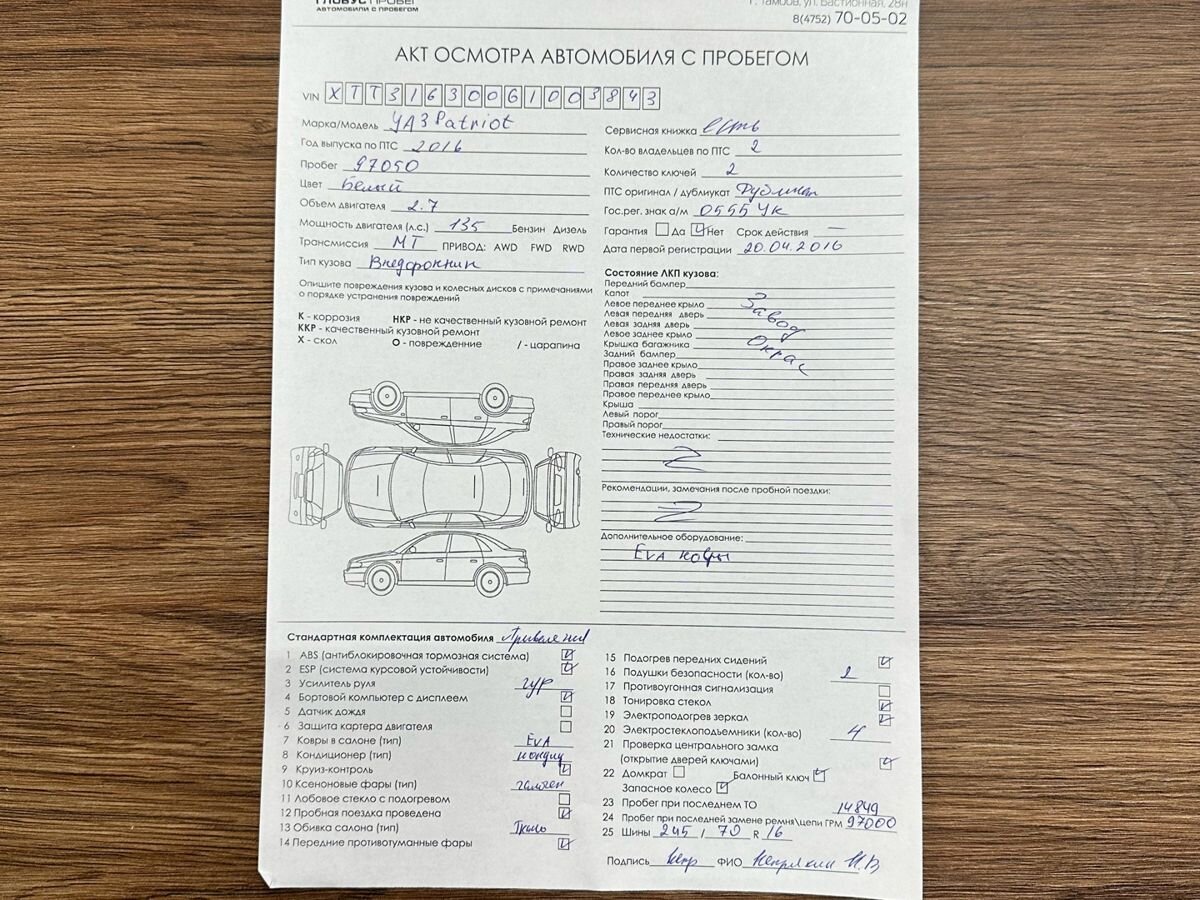 ГЛОБУС ПРОБЕГ
АВТОМОБИЛИ С ПРОБЕГОМ
г. Тамбов, ул. Бастионная, 28н
8(4752) 70-05-02
АКТ ОСМОТРА АВТОМОБИЛЯ С ПРОБЕГОМ
VIN XTT316300G1003843
Марка/Модель УАЗ Patriot
Год выпуска по ПТС 2016
Пробег 97050
Цвет Белый
Объем двигателя 2.7
Мощность двигателя (л.с.) 135 Бензин Дизель
Трансмиссия МТ ПРИВОД: AWD FWD RWD
Тип кузова
Сервисная книжка есть
Кол-во владельцев по ПТС 2
Количество ключей 2
ПТС оригинал / дубликат Дубликат
Гос.рег. знак а/м О555УК
Гарантия Да Нет Срок действия —
Дата первой регистрации 20.04.2016
Опишите повреждения кузова и колесных дисков с примечаниями
о порядке устранения повреждений
К - коррозия НКР - не качественный кузовной ремонт
ККР - качественный кузовной ремонт
Х - скол О - повреждение / - царапина
Состояние ЛКП кузова:
Передний бампер
Капот
Левое переднее крыло Завод
Левая передняя дверь
Левая задняя дверь
Левое заднее крыло Окрас
Крышка багажника
Задний бампер
Правое заднее крыло
Правая задняя дверь
Правая передняя дверь
Правое переднее крыло
Крыша
Левый порог
Правый порог
Технические недостатки:
Рекомендации, замечания после пробной поездки:
Дополнительное оборудование:
EVA ковры
Стандартная комплектация автомобиля
1 ABS (антиблокировочная тормозная система)
2 ESP (система курсовой устойчивости)
3 Усилитель руля гур
4 Бортовой компьютер с дисплеем
5 Датчик дождя
6 Защита картера двигателя
7 Ковры в салоне (тип) EVA
8 Кондиционер (тип) кондиц
9 Круиз-контроль
10 Ксеноновые фары (тип) галоген
11 Лобовое стекло с подогревом
12 Пробная поездка проведена
13 Обивка салона (тип) Ткань
14 Передние противотуманные фары
15 Подогрев передних сидений
16 Подушки безопасности (кол-во) 2
17 Противоугонная сигнализация
18 Тонировка стекол
19 Электроподогрев зеркал
20 Электростеклоподьемники (кол-во) 4
21 Проверка центрального замка
(открытие дверей ключами)
22 Домкрат Балонный ключ
Запасное колесо
23 Пробег при последнем ТО 14849
24 Пробег при последней замене ремня\цепи ГРМ 97000
25 Шины 245 / 70 R 16
Подпись ФИО